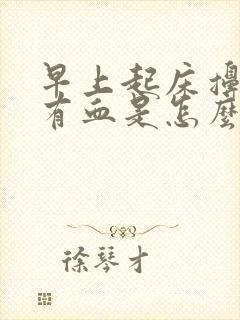 早上起床擤
有血是怎麼
徐琴才